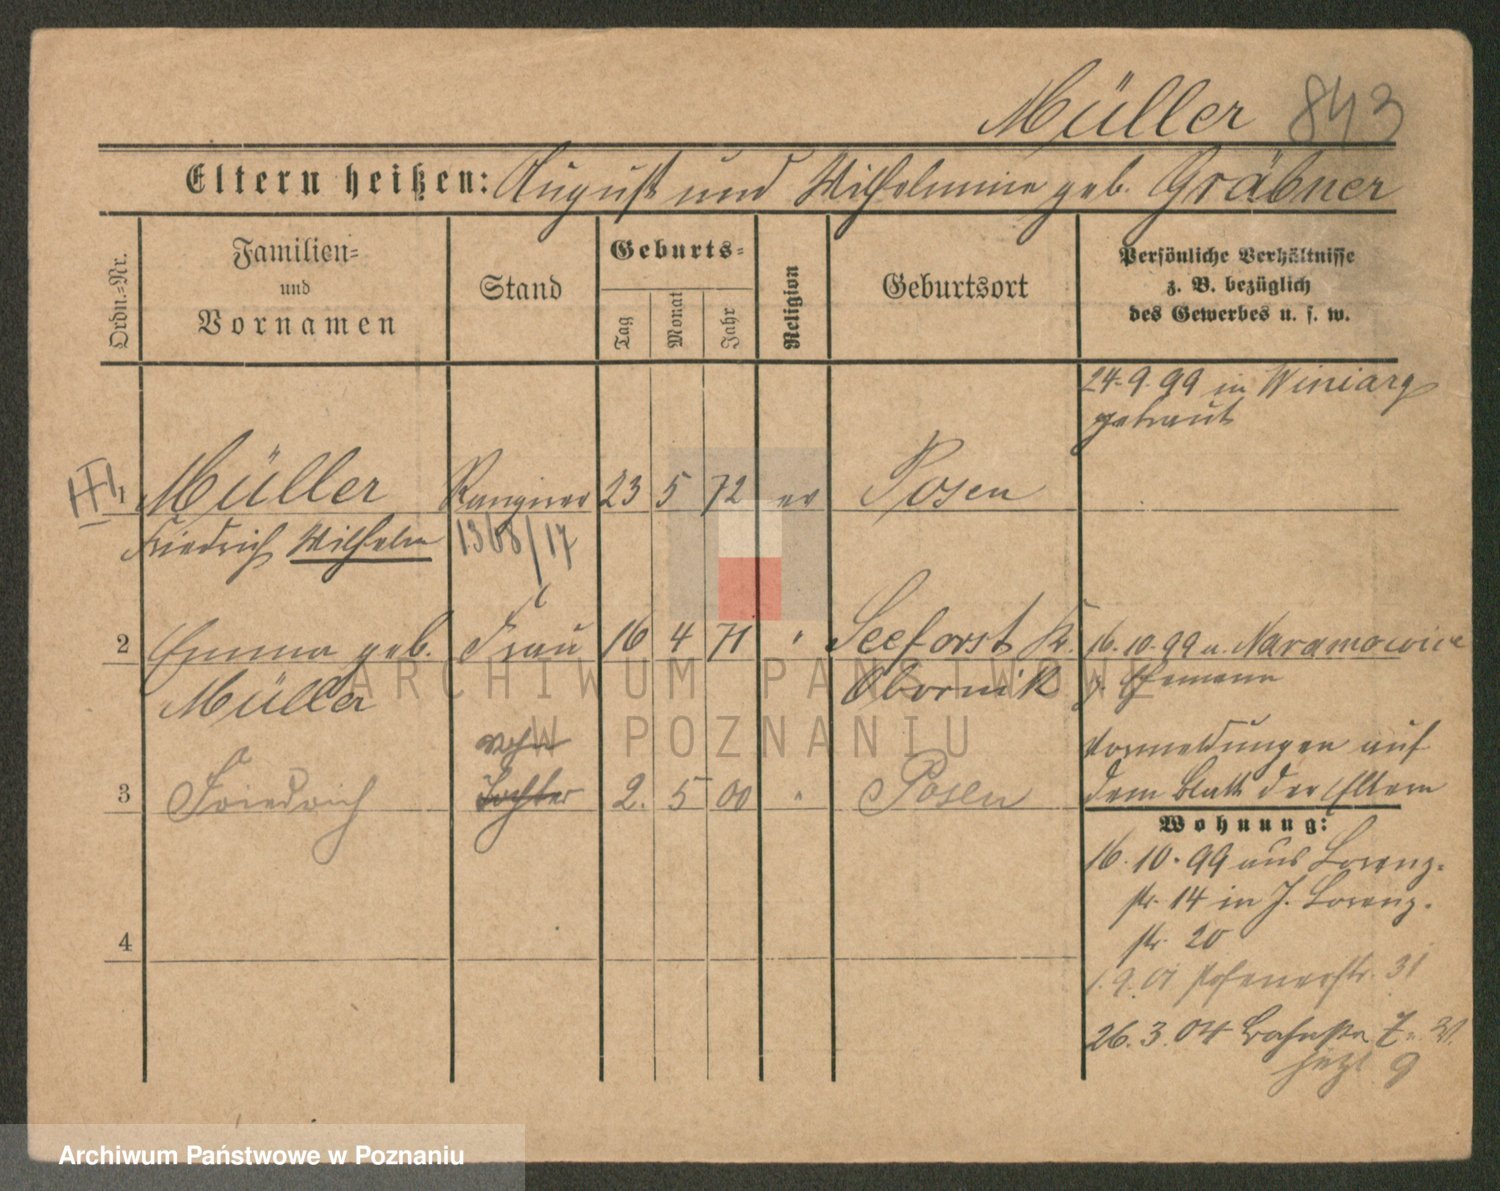 Müller 843
Eltern heißen: August und Wilhelmine geb. Gräbner
Ordn.=Nr.
Familien=
und
Vornamen
Stand
Geburts=
Tag
Monat
Jahr
Religion
Geburtsort
Persönliche Verhältnisse
z. B. bezüglich
des Gewerbes u. s. w.
24.9.99 in Winiary
getraut
1 Müller Rangierer 23 5 72 ev Posen
Friedrich Wilhelm 1368/17
2 Emma geb. Frau 16 4 71 " Seeforst Kr. 16.10.99 v. Naramowice
Müller Obornik z. Ehemann
3 Friedrich Sohn Tochter 2. 5 00 " Posen
Vormeldungen auf
dem Blatt der Eltern
Wohnung:
16.10.99 aus Lorenz-
str. 14 in J. Lorenz-
str. 20
1.9.01 Posenerstr. 31
26.3.04 Bahnstr.
jetzt 9
4
ARCHIWUM PAŃSTWOWE
W POZNANIU
Archiwum Państwowe w Poznaniu